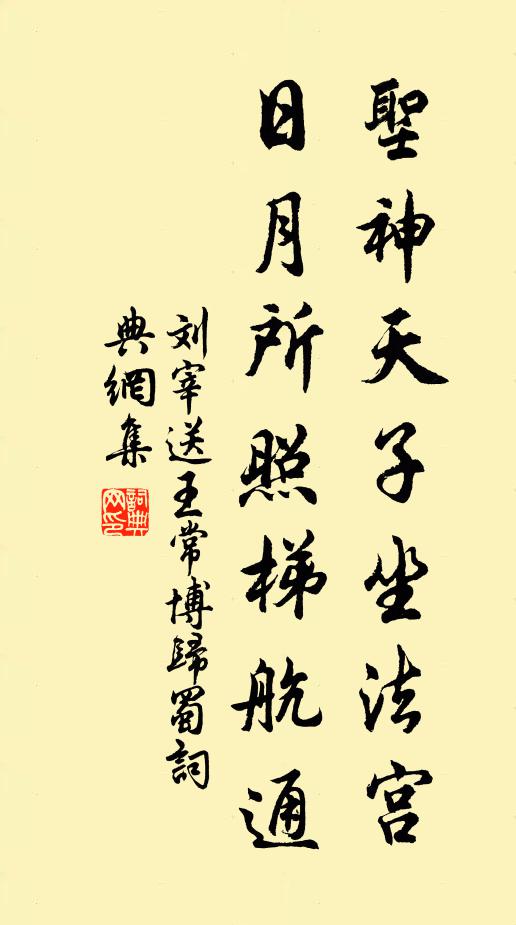 聖神天子坐法宫
日月所照梯航通
刘宰送王常博歸蜀詞
典網集
詞典網印